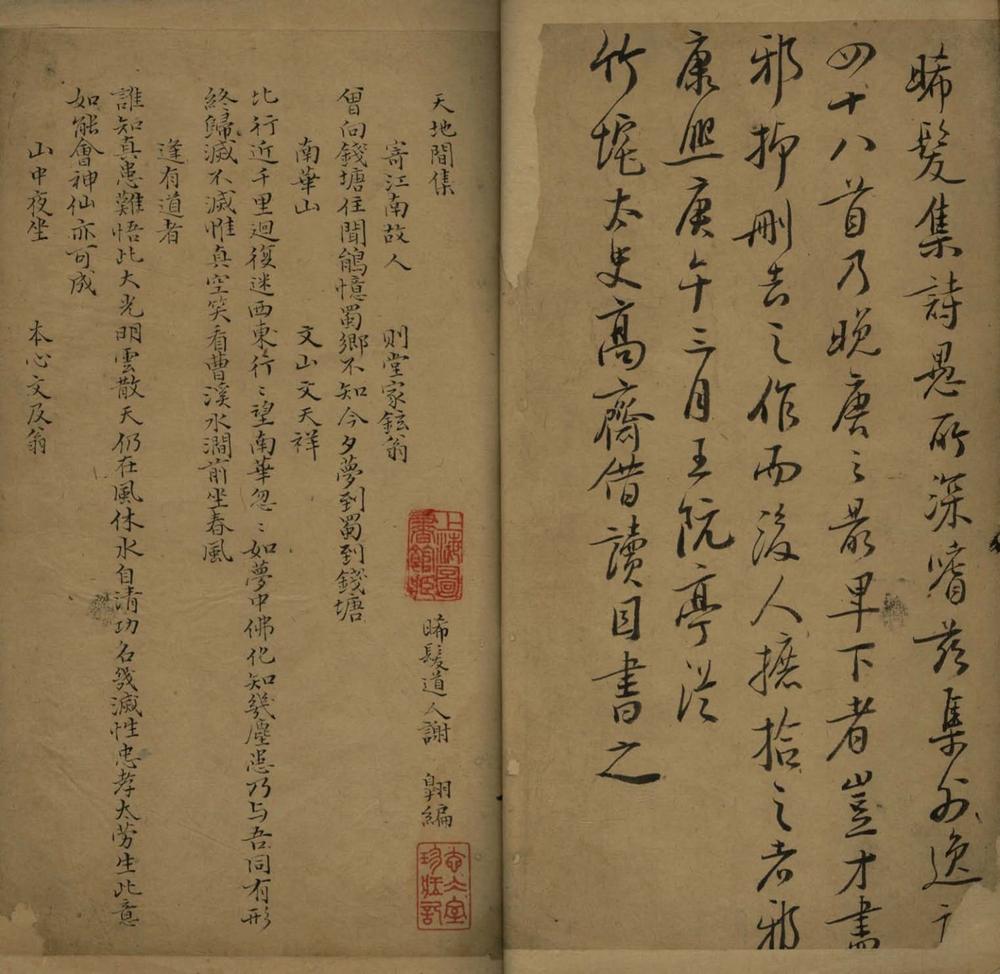 晞髮集詩愚所深嗜茲集外逸
四十八首乃晚唐之最卑下者豈才盡
邪抑刪去之作而後人摭拾之者邪
康熙庚午三月王阮亭從
竹垞太史高齋借讀因書之
天地間集 晞髮道人謝 翱編
寄江南故人 則堂家鉉翁
曾向錢塘住聞鵑憶蜀鄉不知今夕夢到蜀到錢塘
南華山 文山文天祥
比行近千里迴復迷西東行〻望南華忽〻如夢中佛化知幾塵患乃与吾同有形
終歸滅不滅惟真空笑看曹溪水澗前坐春風
逢有道者
誰知真患難悟此大光明雲散天仍在風休水自清功名幾滅性忠孝太勞生此意
如能會神仙亦可成
山中夜坐 本心文及翁
上海圖
書館藏